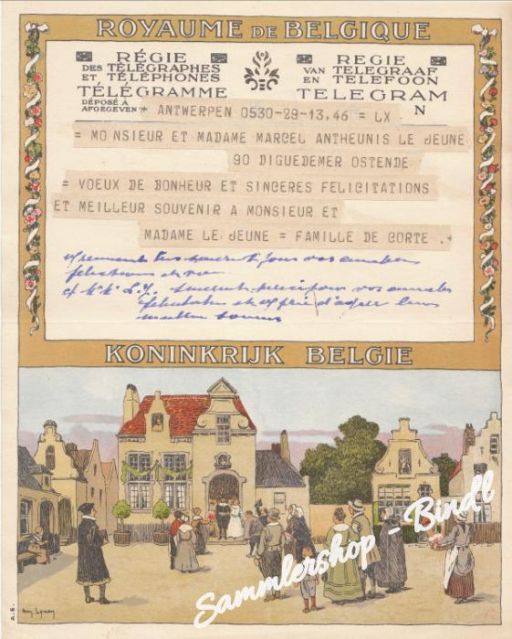 ROYAUME DE BELGIQUE
RÉGIE
DES TÉLÉGRAPHES
ET TÉLÉPHONES
TÉLÉGRAMME
DÉPOSÉ À
AFGEGEVEN
REGIE
VAN TELEGRAAF
EN TELEFOON
TELEGRAM
N
* ANTWERPEN 0530-29-13.46 = LX
= MONSIEUR ET MADAME MARCEL ANTHEUNIS LE JEUNE
90 DIGUEDEMER OSTENDE
= VOEUX DE BONHEUR ET SINCERES FELICITATIONS
ET MEILLEUR SOUVENIR A MONSIEUR ET
MADAME LE JEUNE = FAMILLE DE CORTE .*
pour vos aimables
pour vos aimables
d'agréer leurs
KONINKRIJK BELGIE
Sammlershop - Bindl
A. S.